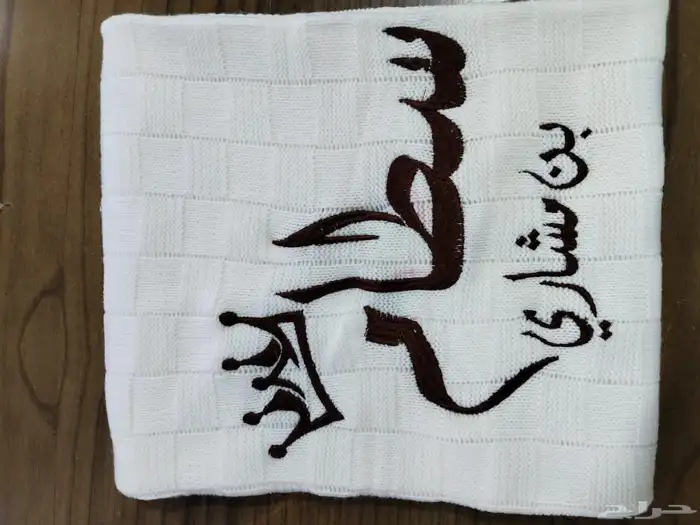 سطام
بن مشاري
حراج